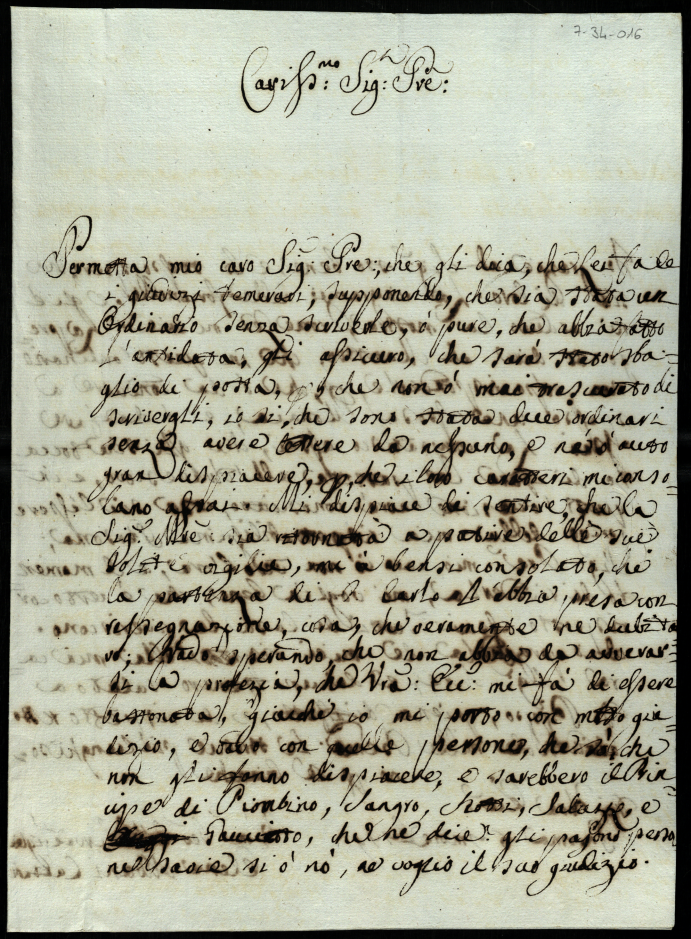 7-34-016
Cariss:mo Sig:r Prē:
Permetta mio caro Sig: Prē:, che gli dica, che Lei fà de
i giudizi temerarj, supponendo, che sia stata un
Ordinario senza scriverle, ò pure, che abbia fatto
l'antidata, gli assicuro, che sarà stato sba=
glio di posta, e che non ò mai trascurato di
scrivergli, io si, che sono stata due ordinari
senza avere lettere da nessuno, e ne ò auto
gran dispiacere, p che i loro caratteri mi conso=
lano assai. Mi dispiace di sentire, che la
Sig:ra Mrē sia ritornata a patire delle sue
solite vigilie, mi à bensi consolato, che
la partenza di Carlo l'abbia presa con
rassegnazione, cosa, che veramente ne dubita
vo; Vado sperando, che non abbia da avverar=
si la profezia, che Vrā: Ecc: mi fà di essere
bastonata, giacchè io mi porto con molto giu=
dizio, e con quelle persone, che sà, che
non gli fanno dispiacere, e sarebbero il Prin
cipe di Piombino, Sangro, e
Gaucciotto, che ne dice: gli pajono perso
ne savie si ò nò, ne voglio il suo giudizio.